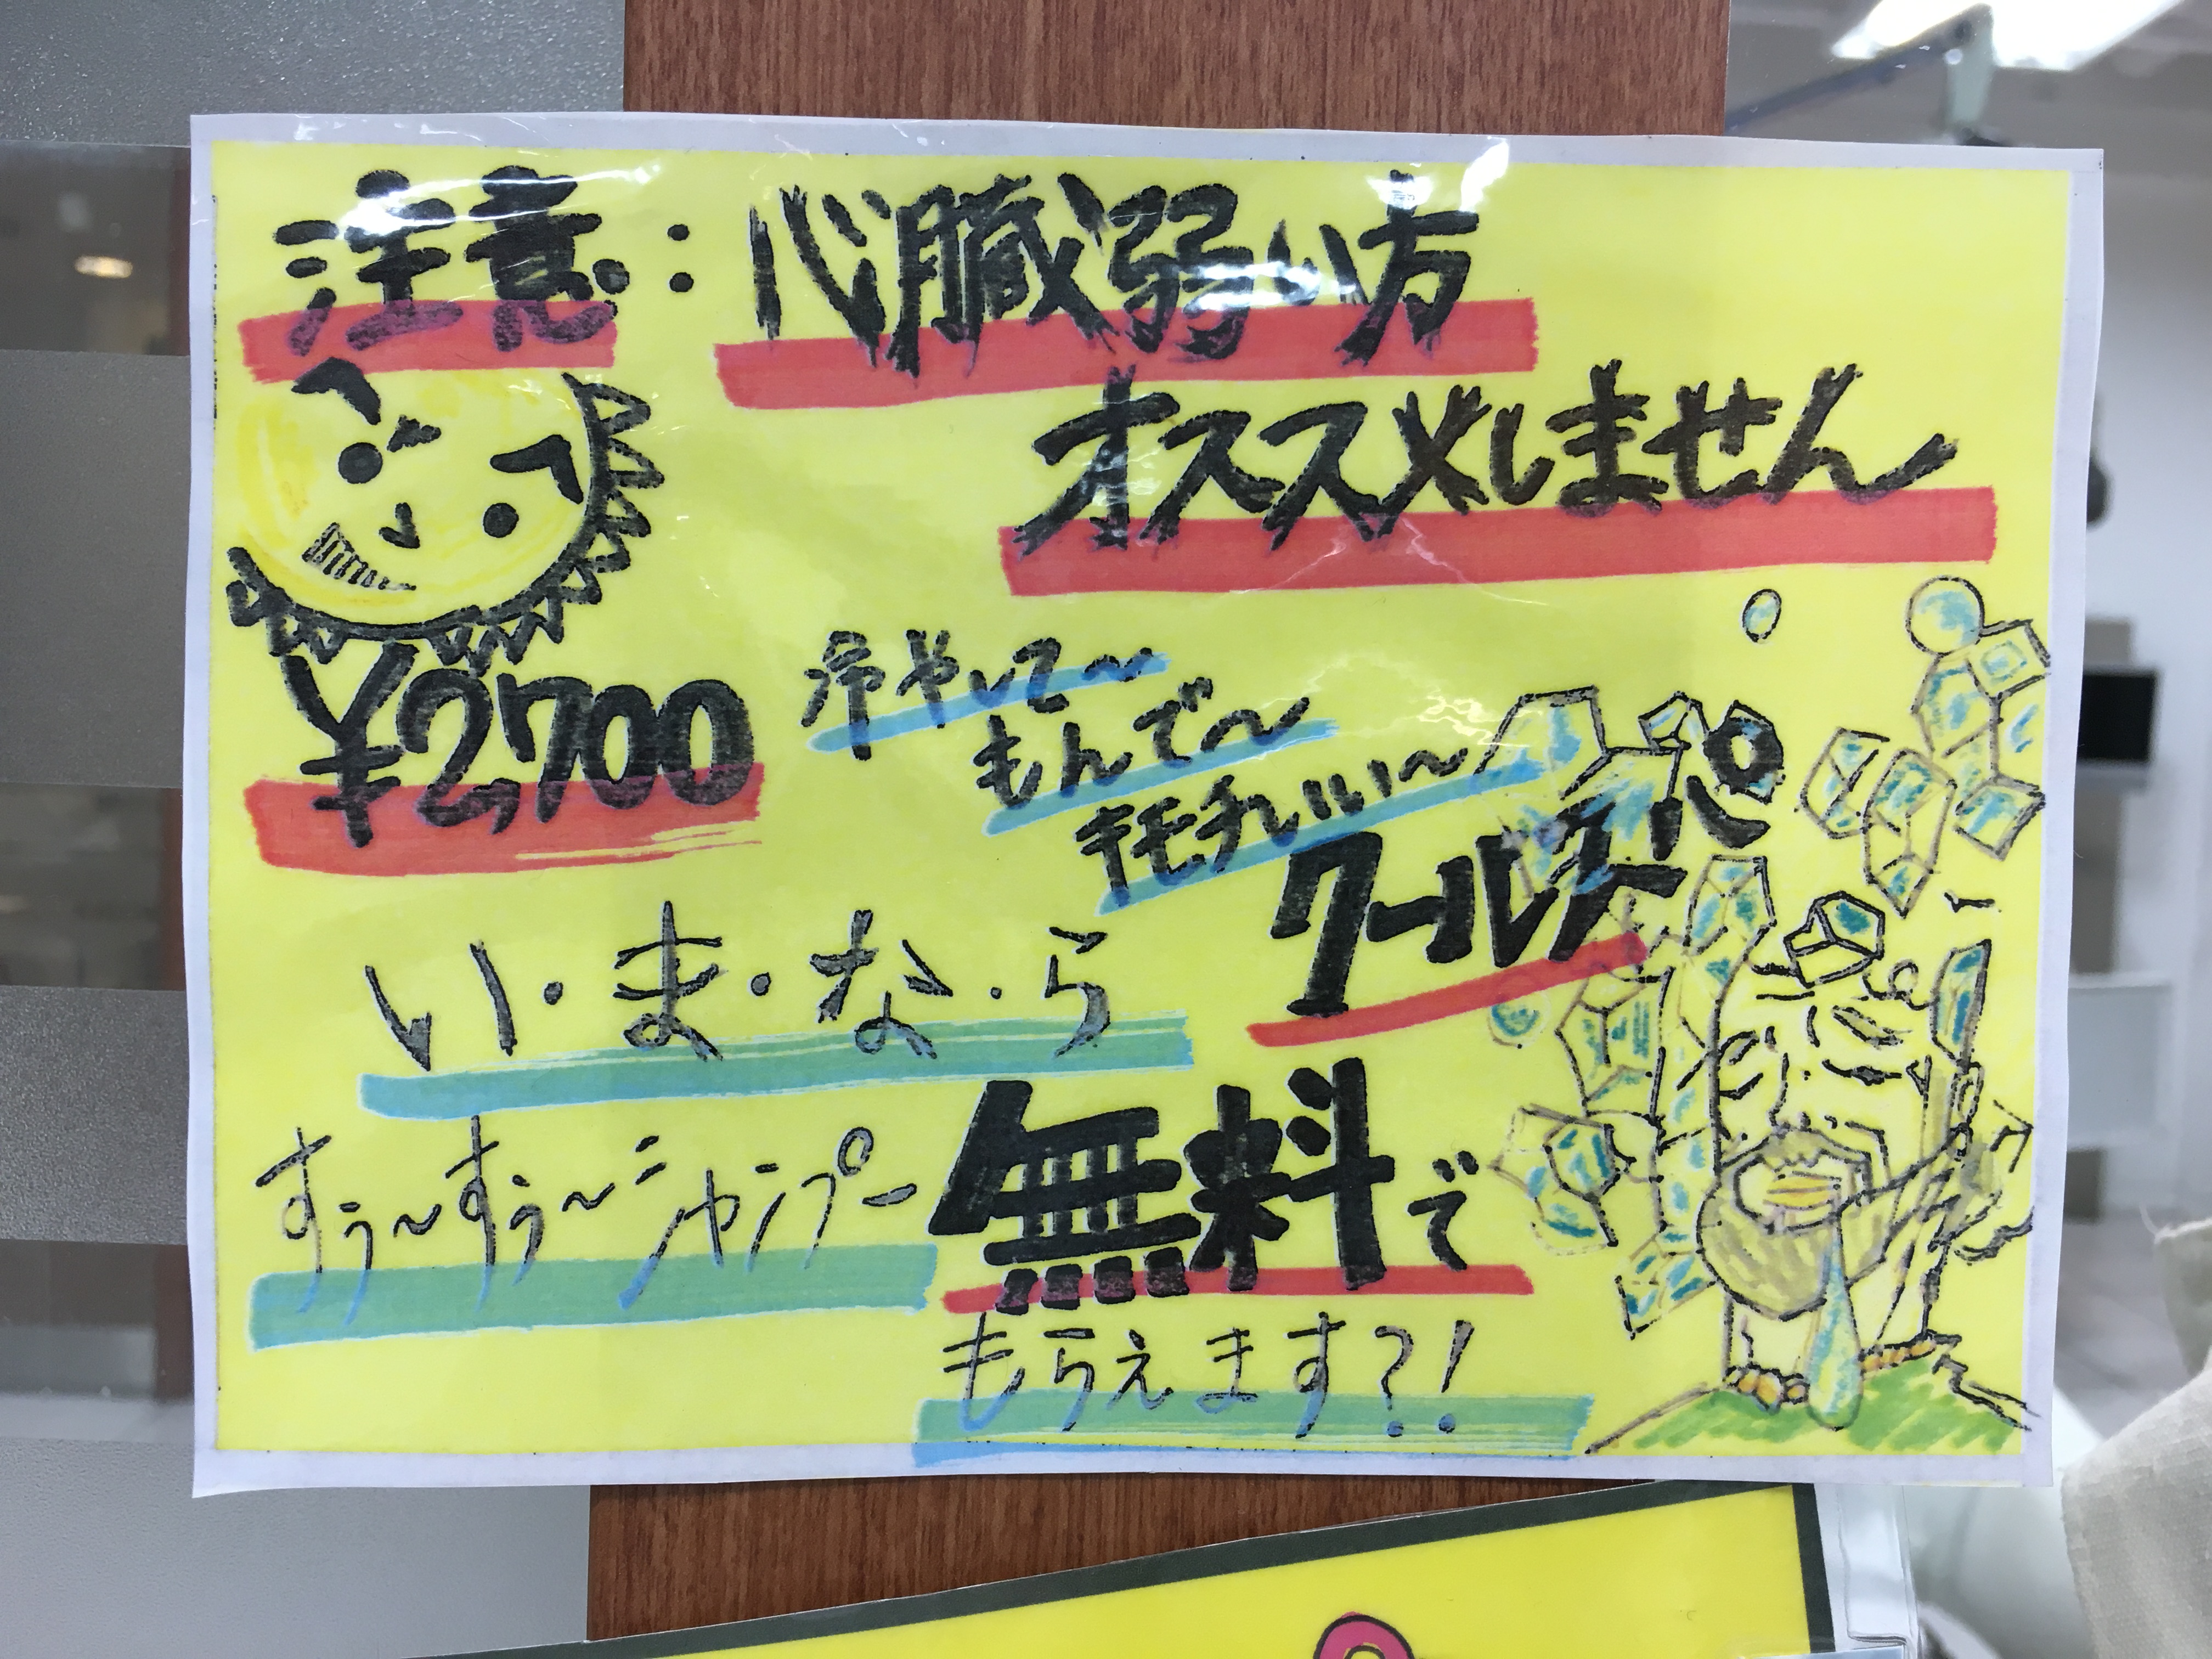 注意：心臓弱い方
オススメしません
¥2,700
冷やして～
もんで～
キモチいいい～
クールスパ
い・ま・な・ら
すぅ～すぅ～シャンプー無料で
もらえます?!